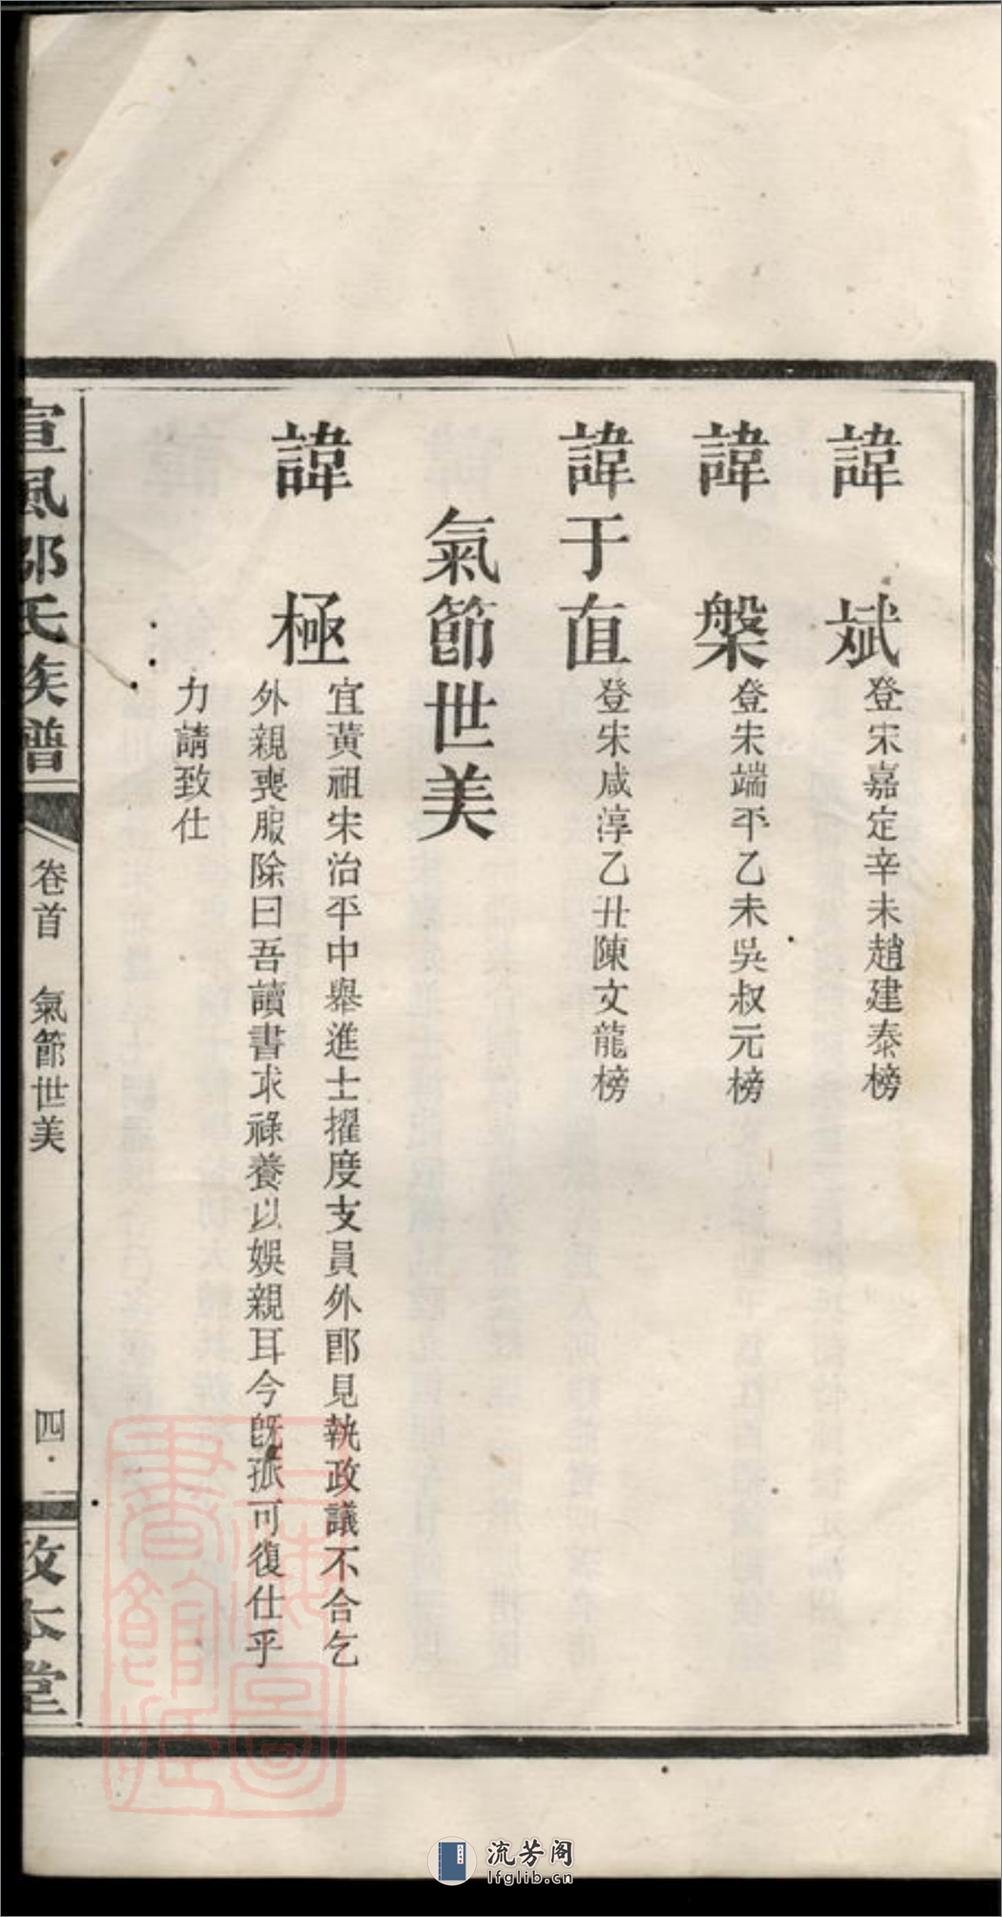 諱斌登宋嘉定辛未趙建泰榜
諱槃登宋端平乙未吳叔元榜
諱于直登宋咸淳乙丑陳文龍榜
氣節世美
諱極宜黃祖宋治平中舉進士擢度支員外郎見執政議不合乞
外親喪服除曰吾讀書求祿養以娛親耳今既孤可復仕乎
力請致仕
宣風鄒氏族譜
卷首 氣節世美
四
敦本堂
上海圖書館藏
流芳阁
lfglib.cn